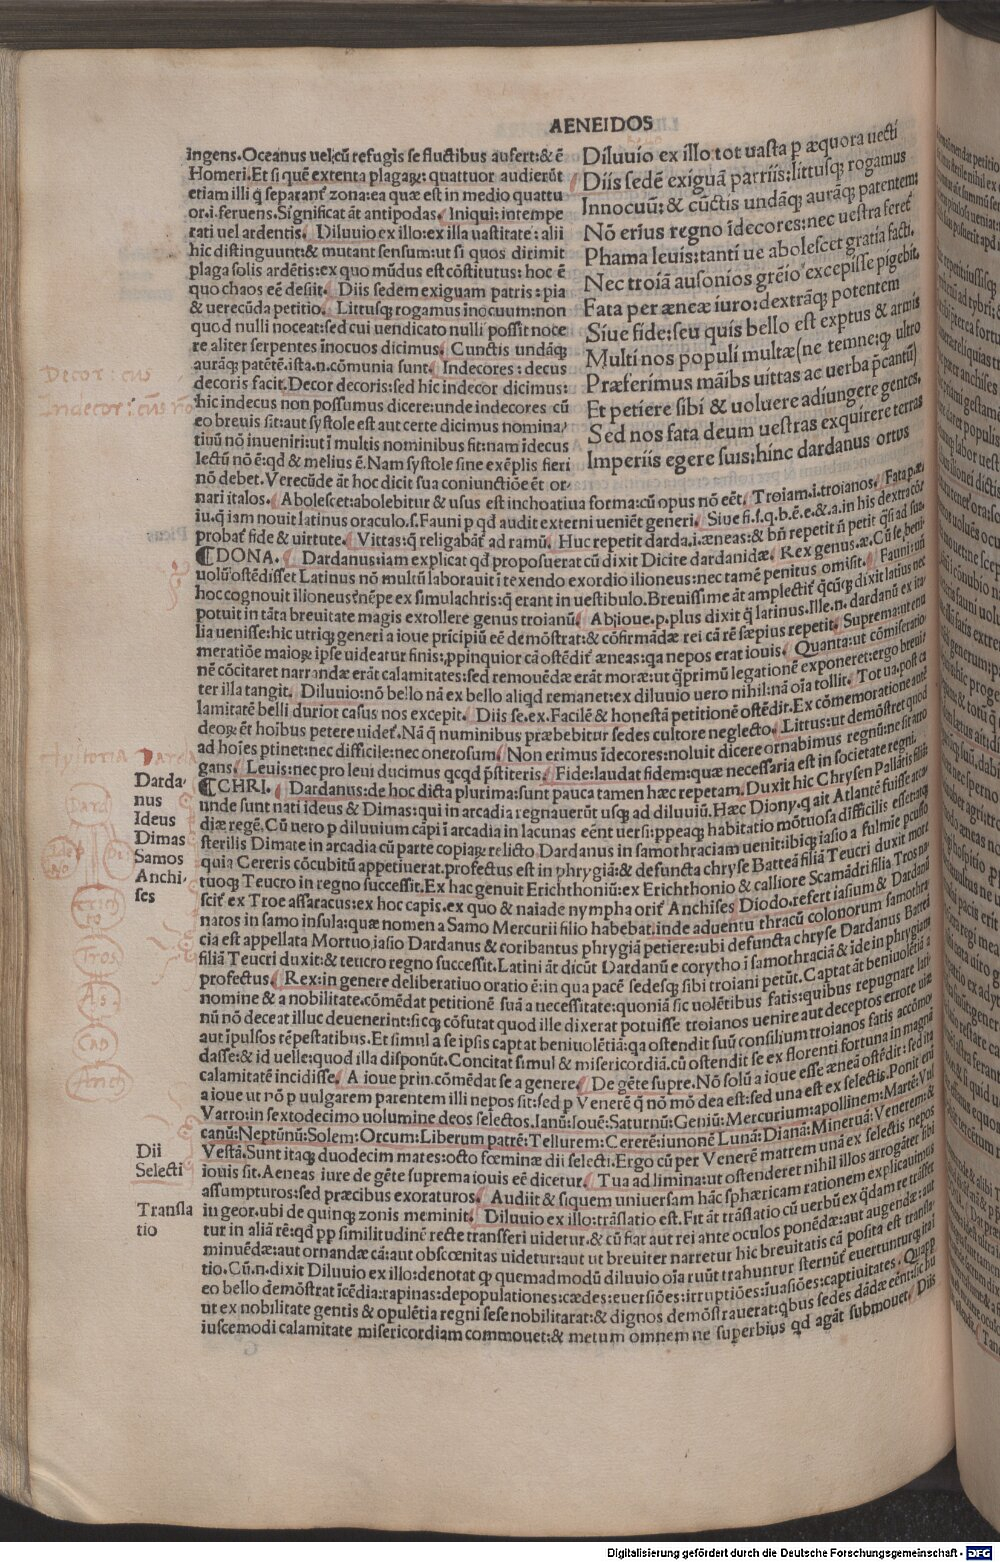 AENEIDOS
ingens. Oceanus uel: cũ refugis se fluctibus aufert: & ē
Homeri. Et si quē extenta plagaꝝ: quattuor audierũt
etiam illi q̃ separant̃ zona: ea quæ est in medio quattu
or. i. feruens. Significat ãt antipodas. Iniqui: intempe
rati uel ardentis. Diluuio ex illo: ex illa uastitate: alii
hic distinguunt: & mutant sensum: ut si quos dirimit
plaga solis ardētis: ex quo mũdus est cõstitutus: hoc ē
quo chaos eē desiit. Diis sedem exiguam patris: pia
& uerecũda petitio. Littusq̃ rogamus inocuum: non
quod nulli noceat: sed cui uendicato nulli possit noce
re aliter serpentes inocuos dicimus. Cunctis undãq̃
aurãq̃ patētē. ista. n. cõmunia sunt. Indecores: decus
decoris facit. Decor decoris: sed hic indecor dicimus:
hic indecus non possumus dicere: unde indecores cũ
eo breuis sit: aut systole est aut certe dicimus nomina/
tiuũ nõ inueniri: ut ĩ multis nominibus fit: nam ĩdecus
lectũ nõ ē: qd & melius ē. Nam systole sine exēplis fieri
nõ debet. Verecũde ãt hoc dicit sua coniunctiõe ēt or-
Diluuio ex illo tot uasta p æquora uecti
Diis sedē exiguã patriis: littusq̃ rogamus
Innocuũ: & cũctis undãq̃ aurãq̃ patentem:
Nõ erius regno ĩdecores: nec uestra feret̃
Phama leuis: tanti ue abolescet gratia facti.
Nec troiã ausonios grēio excepisse pigebit.
Fata per æneæ iuro: dextrãq̃ potentem
Siue fide: seu quis bello est exptus & armis
Multi nos populi multæ (ne temne: q̃ ultro
Præferimus mãibs uittas ac uerba p̃cantũ)
Et petiere sibi & uoluere adiungere gentes.
Sed nos fata deum uestras exquirere terras
Imperiis egere suis: hinc dardanus ortus
nari italos. Abolescet: abolebitur & usus est inchoatiua forma: cũ opus nõ eēt. Troiam. i. troianos. Fata p æ
iu. q̃ iam nouit latinus oraculo. s. Fauni p qd audit externi ueniēt generi. Siue fi. s. q. b. ē. e. & .a. in his dextra cõ
probat̃ fide & uirtute. Vittas: q̃ religabãt̃ ad ramũ. Huc repetit darda. i. æneas: & bñ repetit ñ petit q̃si ad suũ
DONA. Dardanus: iam explicat qd proposuerat cũ dixit Dicite dardanidæ. Rex genus. æ. Cũ se beni
uolũ ostēdisset Latinus nõ multũ laborauit ĩ texendo exordio ilioneus: nec tamē penitus omisit. Fauni: un
hoc cognouit ilioneus? nēpe ex simulachris: q̃ erant in uestibulo. Breuissime ãt amplectit̃ q̃cũq̃ dixit latius nec
potuit in tãta breuitate magis extollere genus troianũ. Ab ioue. p. plus dixit q̃ latinus. Ille. n. dardanũ ex ita
lia uenisse: hic utriq̃ generi a ioue prĩcipiũ eē demõstrat: & cõfirmãdæ rei cã rē sæpius repetit. Suprema: ut enu
meratiõe maioꝝ ipse uideatur finis: ꝓpinquior cã ostēdit̃ æneas: qa nepos erat iouis. Quanta: ut cõmiseratio
nē cõcitaret narrandæ erãt calamitates: sed remouēdæ erãt moræ: ut q̃primũ legationē exponeret: ergo breui
ter illa tangit. Diluuio: nõ bello nã ex bello aliqd remanet: ex diluuio uero nihil: nã oĩa tollit. Tot ua. post cã
lamitatē belli duriot casus nos excepit. Diis se. ex. Facilē & honestã petitionē ostēdit. Ex cõmemoratione autē
deoꝝ ēt hoĩbus petere uidet̃. Nã q̃ numinibus præbebitur sedes cultore neglecto. Littus: ut demõstret quod
ad hoĩes ptinet: nec difficile: nec onerosum. Non erimus ĩdecores: noluit dicere ornabimus regnũ: ne sit arro
gans. Leuis: nec pro leui ducimus qcqd p̃stiteris. Fide: laudat fidem: quæ necessaria est in societate regni.
CHRI. Dardanus: de hoc dicta plurima: sunt pauca tamen hæc repetam. Duxit hic Chrysen Pallãtis filiã:
unde sunt nati ideus & Dimas: qui in arcadia regnauerũt usq̃ ad diluuiũ. Hæc Diony. q̃ ait Atlantē fuisse arca
diæ regē. Cũ uero p diluuium cãpi ĩ arcadia in lacunas eēnt uersi: ppeaq̃ habitatio mõtuosa difficilis esset: atq̃
sterilis Dimate in arcadia cũ parte copiaꝝ relicto Dardanus in samothraciam uenit: ibiq̃ iasio a fulmie pcusso
quia Cereris cõcubitũ appetiuerat. profectus est in phrygiã: & defuncta chryse Batteã filiã Teucri duxit mort
tuoq̃ Teucro in regno successit. Ex hac genuit Erichthoniũ: ex Erichthonio & calliore Scamãdri filia Tros na
scit̃ ex Troe assaracus: ex hoc capis. ex quo & naiade nympha orit̃ Anchises Diodo. refert iasium & Dardanũ
natos in samo insula: quæ nomen a Samo Mercurii filio habebat. inde aduentu thracũ colonorum samothra
cia est appellata Mortuo iasio Dardanus & coribantus phrygiã petiere: ubi defuncta chryse Dardanus Battei
filiã Teucri duxit: & teucro regno successit. Latini ãt dicũt Dardanũ e corytho ĩ samothraciã & ide in phrygiam
profectus. Rex: in genere deliberatiuo oratio ē: in qua pacē sedesq̃ sibi troiani petũt. Captat ãt beniuolētiã a
nomine & a nobilitate. cõmēdat petitionē suã a necessitate: quoniã sic uolētibus fatis: quibus repugnare lati
nũ nõ deceat illuc deuenerint: sicq̃ cõfutat quod ille dixerat potuisse troianos uenire aut deceptos errore uiæ
aut ĩpulsos tēpestatibus. Et simul a se ipsis captat beniuolētiã: qa ostendit suũ consilium troianos fatis accõmo
dasse: & id uelle: quod illa disponũt. Concitat simul & misericordiã. cũ ostendit se ex florenti fortuna in magnã
calamitatē incidisse. A ioue prin. cõmēdat se a genere. De gēte supre. Nõ solũ a ioue esse æneã ostēdit: sed ita
a ioue ut nõ p uulgarem parentem illi nepos sit: sed p Venerē q̃ nõ mõ dea est: sed una est ex selectis. Ponit eni
Varro: in sextodecimo uolumine deos selectos. Ianũ: Iouē: Saturnũ: Geniũ: Mercurium: apollinem: Martē: Vul
canũ: Neptũnũ: Solem: Orcum: Liberum patrē: Tellurem: Cererē: iunonē Lunã: Dianã: Mineruã: Venerem: &
Vestã. Sunt itaq̃ duodecim mares: octo fœminæ dii selecti. Ergo cũ per Venerē matrem unã ex selectis nepos
iouis sit. Aeneas iure de gēte suprema iouis eē dicetur. Tua ad limina: ut ostenderet nihil illos arrogãter sibi
assumpturos: sed præcibus exoraturos. Audiit & siquem uniuersam hãc sphæricam rationem explicauimus
iu geor. ubi de quinq̃ zonis meminit. Diluuio ex illo: trãslatio est. Fit ãt trãslatio cũ uerbũ ex q̃dam re trãsfer
tur in aliã rē: qd pp similitudinē recte transferri uidetur. & cũ fiat aut rei ante oculos ponēdæ: aut augendæ: aut
minuēdæ: aut ornandæ cã: aut obscœnitas uidetur: aut ut breuiter narretur hic breuitatis cã posita est transla
tio. Cũ. n. dixit Diluuio ex illo: denotat q̃ quemadmodũ diluuio oĩa ruũt trahuntur sternũt̃ euertuntur: q̃ ita ĩ
eo bello demõstrat ĩcēdia: rapinas: depopulationes: cædes: euersiões: irruptiões: ĩuasiões: captiuitates. Quapp
ut ex nobilitate gentis & opulētia regni sese nobilitarat: & dignos demõstrauerat: qbus sedes dãdæ eēnt: sic hu
iuscemodi calamitate misericordiam commouet: & metum omnem ne superbius qd agãt submouet. Diis
Decor: cus
Indecor: cus no
Hystoria Darda
Darda-
nus
Ideus
Dimas
Samos
Anchi-
ses
Dard
Di
Erich
to
Tros
As.
Cap
Anch
Dii
Selecti
Transla
tio
Digitalisierung gefördert durch die Deutsche Forschungsgemeinschaft - DFG